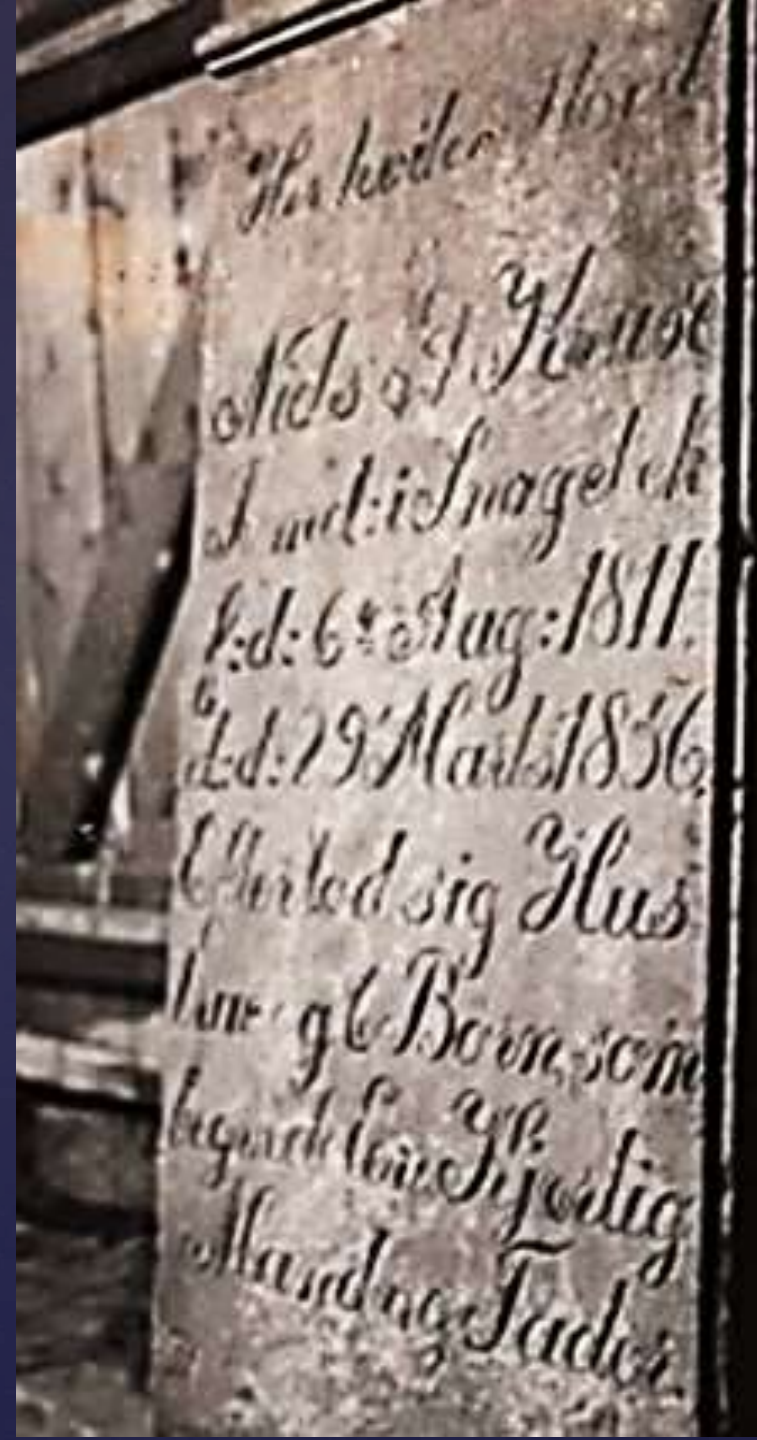 Her hviler Stöved
Niels J. Kruse
Smed: i Snagebek
F:d: 6te Aug: 1811.
d:d: 29 Marts 1856.
Efterlod sig Hus
true og 6 Börn, som
begræde en Kjærlig
Mand og Fader